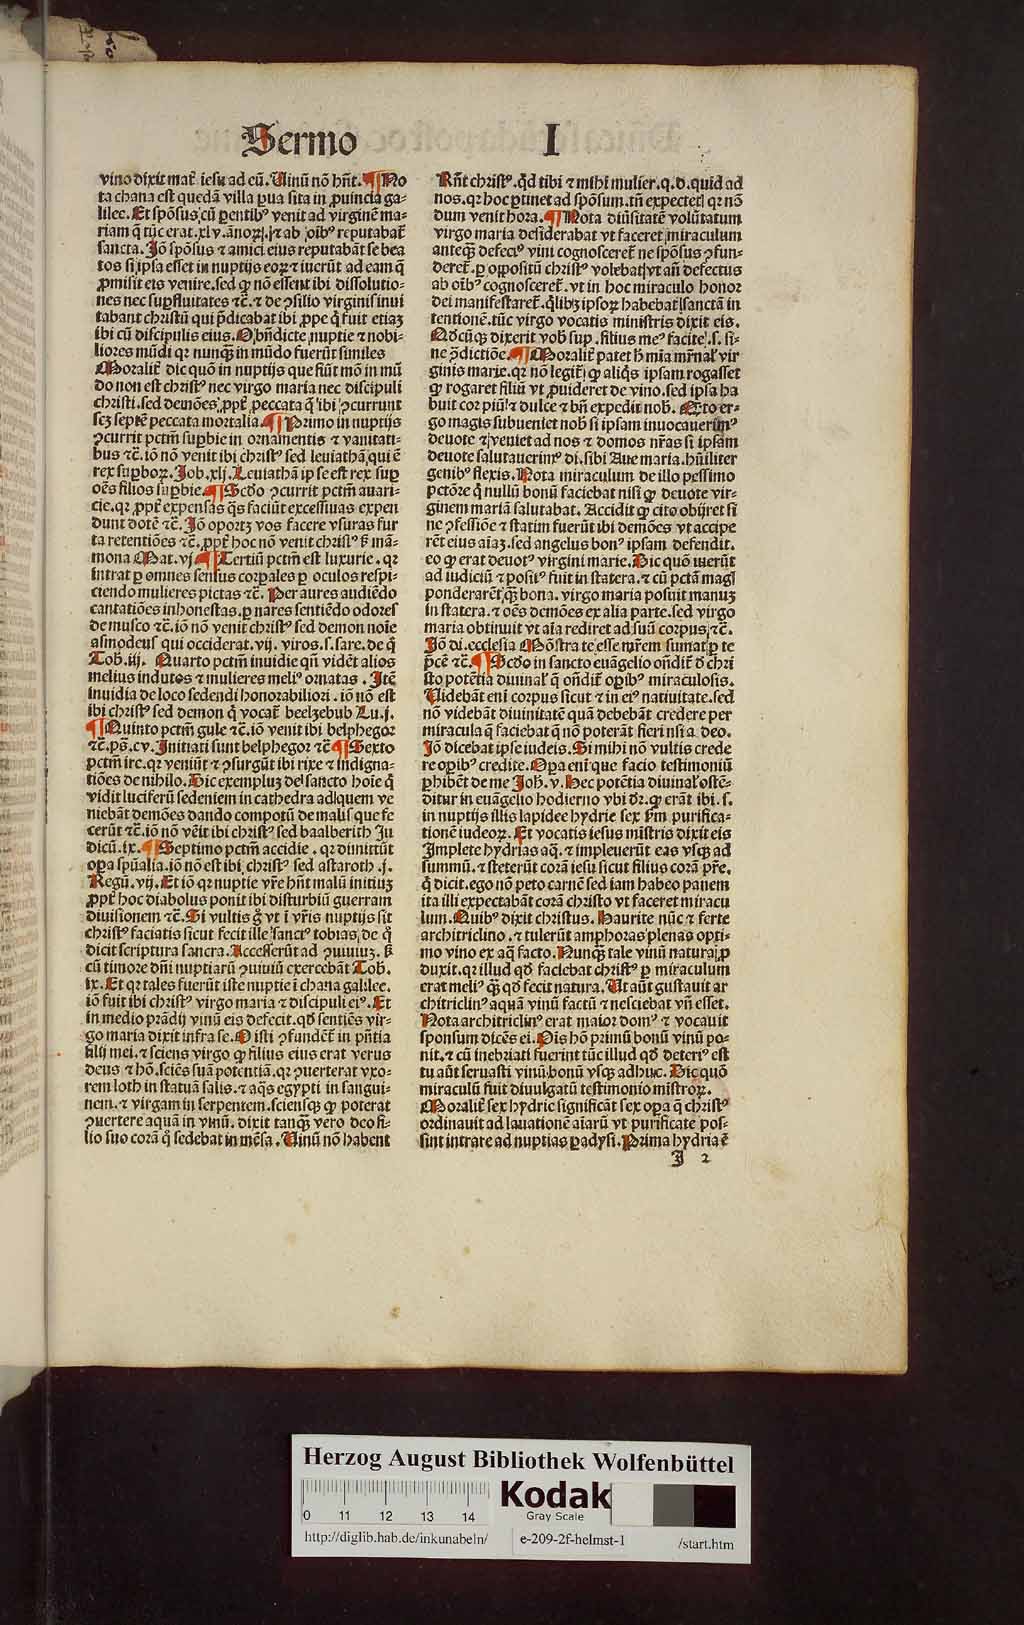 Sermo I
vino dixit mat̃ iesu ad eū. Uinū nō hñt. ¶ No
ta chana est quedã villa ꝑua sita in ꝓuincia ga⸗
lilee. Et spõsus cũ ꝑentibꝰ venit ad virginẽ ma⸗
riam q̃ tũc erat .xlv. ãnoꝝ. ⁊ ab oĩbꝰ reputabat̃
sancta. Jõ spõsus ⁊ amici eius reputabãt se bea
tos si ipsa esset in nuptijs eoꝝ ⁊ iuerũt ad eam q̃
ꝓmisit eis venire. sed ꝙ nõ essent ibi dissolutio⸗
nes nec suꝑfluitates ⁊c̃. ⁊ de ꝯsilio virginis inui
tabant christũ qui p̃dicabat ibi ꝓpe q̃ fuit etiaꝫ
ibi cũ discipulis eius. O bñdicte nuptie ⁊ nobi⸗
liores mũdi qꝛ nunqꝫ in mũdo fuerũt similes
Moralit̃ dic quõ in nuptijs que fiũt mõ in mũ
do non est christꝰ nec virgo maria nec discipuli
christi. sed demões ꝓpt̃ peccata q̃ ibi ꝯcurrunt
scꝫ septẽ peccata mortalia. ¶ Primo in nuptijs
ꝯcurrit pctm̃ suꝑbie in ornamentis ⁊ vanitati⸗
bus ⁊c̃. iõ nõ venit ibi christꝰ sed leuiathã qui ẽ
rex suꝑboꝝ. Job .xlj. Leuiathã ipse est rex suꝑ
oẽs filios suꝑbie. ¶ Scdo ꝯcurrit pctm̃ auari⸗
cie. qꝛ ꝓpt̃ expensas q̃s faciũt excessiuas expen
dunt dotẽ ⁊c̃. Jõ oportꝫ vos facere vsuras fur
ta retentiões ⁊c̃. ꝓpt̃ hoc nõ venit christꝰ ß mã⸗
mona Mat. vj ¶ Tertiũ pctm̃ est luxurie. qꝛ
intrat ꝑ omnes sensus corꝑales ꝑ oculos respi⸗
ciendo mulieres pictas ⁊c̃. Per aures audiẽdo
cantatiões inhonestas. ꝑ nares sentiẽdo odores
de musco ⁊c̃. iõ nõ venit christꝰ sed demon noĩe
asmodeus qui occiderat .vij. viros. s. sare. de q̃
Tob. iij. Quarto pctm̃ inuidie qñ vidẽt alios
melius indutos ⁊ mulieres meliꝰ ornatas. Jtẽ
inuidia de loco sedendi honorabiliori. iõ nõ est
ibi christꝰ sed demon q̃ vocat̃ beelzebub Lu. j.
¶ Quinto pctm̃ gule ⁊c̃. iõ venit ibi belphegor
⁊c̃. ps̃. cv. Jnitiati sunt belphegor ⁊c̃ ¶ Sexto
pctm̃ ire. qꝛ veniũt ⁊ ꝯsurgũt ibi rixe ⁊ indigna⸗
tiões de nihilo. Dic exempluꝫ de sancto hoĩe q̃
vidit luciferũ sedentem in cathedra ad quem ve
niebãt demões dando compotũ de malis que fe
cerũt ⁊c̃. iõ nõ vẽit ibi christꝰ sed baalberith Ju
dicũ. ix. ¶ Septimo pctm̃ accidie. qꝛ dimittũt
oꝑa spũalia. iõ nõ est ibi christꝰ sed astaroth .j.
Regũ. vij. Et iõ qꝛ nuptie vr̃e hñt malũ initiuꝫ
ꝓpt̃ hoc diabolus ponit ibi disturbiũ guerram
diuisionem ⁊c̃. Si vultis g̃ vt ĩ vr̃is nuptijs sit
christꝰ faciatis sicut fecit ille sanctꝰ tobias de q̃
dicit scriptura sancta. Accesserũt ad ꝯuiuiuꝫ. ß
cũ timore dñi nuptiarũ ꝯuiuiũ exercebãt Tob.
ix. Et qꝛ tales fuerũt iste nuptie ĩ chana galilee.
iõ fuit ibi christꝰ virgo maria ⁊ discipuli eiꝰ. Et
in medio prãdij vinũ eis defecit. qð sentiẽs vir⸗
go maria dixit infra se. O isti ꝯfundẽt̃ in p̃ñtia
filij mei. ⁊ sciens virgo ꝙ filius eius erat verus
deus ⁊ hõ. sciẽs suã potentiã. qꝛ ꝯuerterat vxo⸗
rem loth in statuã salis. ⁊ aq̃s egypti in sangui⸗
nem. ⁊ virgam in serpentem. sciensqꝫ ꝙ poterat
ꝯuertere aquã in vinũ. dixit tanqꝫ vero deo fi⸗
lio suo corã q̃ sedebat in mẽsa. Uinũ nõ habent
Rñt christꝰ. qd̃ tibi ⁊ mihi mulier. q. d. quid ad
nos. qꝛ hoc ꝑtinet ad spõsum. tñ expectet qꝛ nõ
dum venit hora. ¶ Nota diũsitatẽ volũtatum
virgo maria desiderabat vt faceret miraculum
anteqꝫ defectꝰ vini cognosceret̃ ne sponsus ꝯfun⸗
deret̃. ꝑ oppositũ christꝰ volebat vt añ defectus
ab oĩbꝰ cognosceret̃. vt in hoc miraculo honor
dei manifestaret̃. q̃libꝫ ipsoꝝ habebat sanctã in
tentionẽ. tũc virgo vocatis ministris dixit eis.
Qðcũqꝫ dixerit vob̃ sup. filius meꝰ facite. s. si⸗
ne p̃dictiõe. ¶ Moralit̃ patet ħ mĩa mr̃nal̃ vir
ginis marie. qꝛ nõ legit̃ ꝙ aliq̃s ipsam rogasset
ꝙ rogaret filiũ vt ꝓuideret de vino. sed ipsa ha
buit cor piũ ⁊ dulce ⁊ bñ expedit nob̃. Q̃to er⸗
go magis subueniet nob̃ si ipsam inuocauerimꝰ
deuote ⁊ veniet ad nos ⁊ domos nr̃as si ipsam
deuote salutauerimꝰ di. sibi Aue maria. hũiliter
genibꝰ flexis. Nota miraculum de illo pessimo
pctõre q̃ nullũ bonũ faciebat nisi ꝙ deuote vir⸗
ginem mariã salutabat. Accidit ꝙ cito obijret si
ne ꝯfessiõe ⁊ statim fuerũt ibi demões vt accipe
rẽt eius aĩaꝫ. sed angelus bonꝰ ipsam defendit.
eo ꝙ erat deuotꝰ virgini marie. Dic quõ iuerũt
ad iudiciũ ⁊ positꝰ fuit in statera. ⁊ cũ pctã magꝭ
ponderarẽt qꝫ bona. virgo maria posuit manuꝫ
in statera. ⁊ oẽs demões ex alia parte. sed virgo
maria obtinuit vt aĩa rediret ad suũ corpus ⁊c̃.
Jõ di. ecclesia Mõstra te esse mr̃em sumat ꝑ te
p̃cẽ ⁊c̃. ¶ Scdo in sancto euãgelio oñdit̃ d̃ chri
sto potẽtia diuinal̃ q̃ oñdit̃ oꝑibꝰ miraculosis.
Uidebãt eni corpus sicut ⁊ in eiꝰ natiuitate. sed
nõ videbãt diuinitatẽ quã debebãt credere per
miracula q̃ faciebat q̃ nõ poterãt fieri nsi a deo.
Jõ dicebat ipse iudeis. Si mihi nõ vultis crede
re oꝑibꝰ credite. Oꝑa eni que facio testimoniũ
ꝑhibẽt de me Joh̃. v. Hec potẽtia diuinal̃ ostẽ⸗
ditur in euãgelio hodierno vbi dr̃. ꝙ erãt ibi. s.
in nuptijs illis lapidee hydrie sex ßm purifica⸗
tionẽ iudeoꝝ. Et vocatis iesus mĩstris dixit eis
Jmplete hydrias aq̃. ⁊ impleuerũt eas vsqꝫ ad
summũ. ⁊ steterũt corã iesu sicut filius corã pr̃e.
q̃ dicit. ego nõ peto carnẽ sed iam habeo panem
ita illi expectabãt corã christo vt faceret miracu
lum. Quibꝰ dixit christus. Haurite nũc ⁊ ferte
architriclino. ⁊ tulerũt amphoras plenas opti⸗
mo vino ex aq̃ facto. Nunqꝫ tale vinũ natura ꝓ
duxit. qꝛ illud qð faciebat christꝰ ꝑ miraculum
erat meliꝰ qꝫ qð fecit natura. Ut aũt gustauit ar
chitriclinꝰ aquã vinũ factũ ⁊ nesciebat vñ esset.
Nota architriclinꝰ erat maior domꝰ ⁊ vocauit
sponsum dicẽs ei. Ois hõ primũ bonũ vinũ po⸗
nit. ⁊ cũ inebriati fuerint tũc illud qð deteriꝰ est
tu aũt seruasti vinũ bonũ vsqꝫ adhuc. Dic quõ
miraculũ fuit diuulgatũ testimonio mĩstroꝝ.
Moralit̃ sex hydrie significãt sex oꝑa q̃ christꝰ
ordinauit ad lauationẽ aiarũ vt purificate pos⸗
sint intrare ad nuptias ꝑadysi. Prima hydria ẽ
J 2
Herzog August Bibliothek Wolfenbüttel
0 11 12 13 14
Kodak
Gray Scale
http://diglib.hab.de/inkunabeln/ e-209-2f-helmst-1 /start.htm